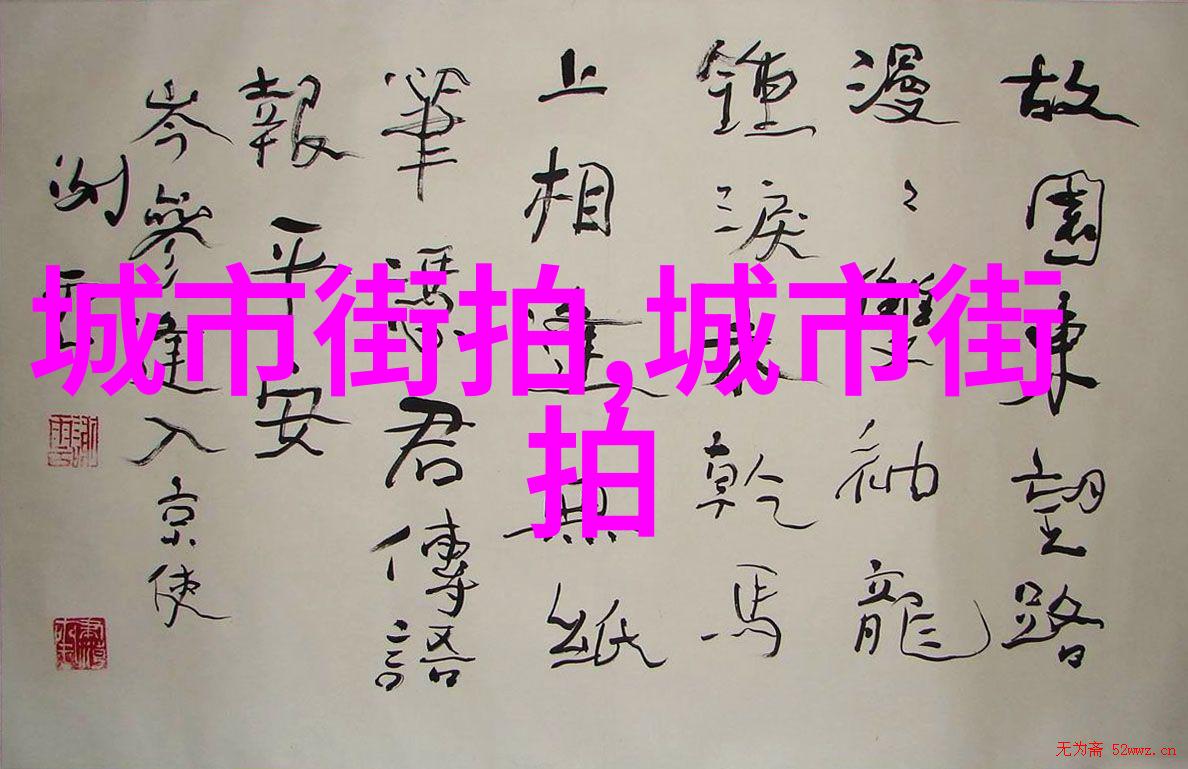 故園東望路
漫〻雙袖龍
鍾淚未乾馬
上相逢無紙
筆憑君傳語
報平安
岑參逢入京使
城市街拍,城市街
拍
无为斋 52wwz.cn